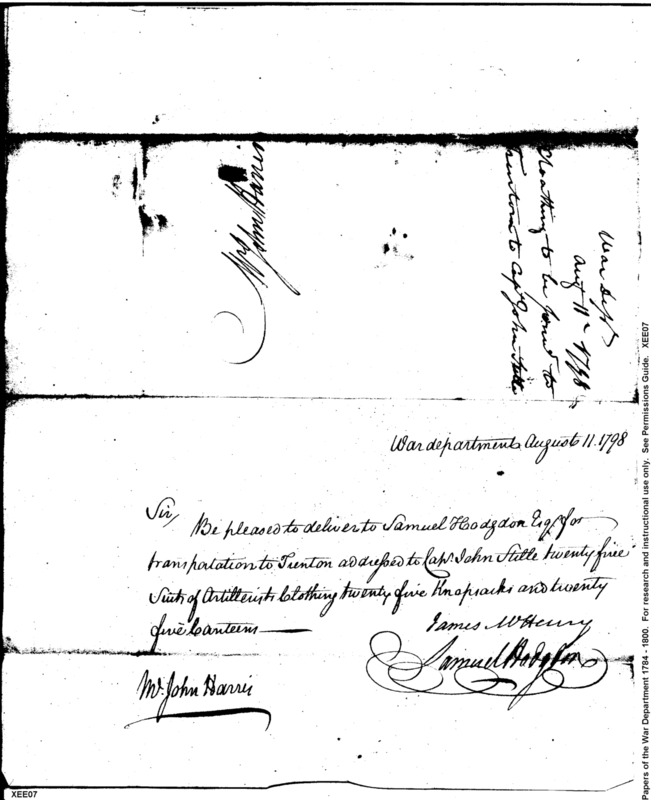 War Dept
Aug 11th 1798
Cloathing to be found to
Trenton to Capt John Stille
War department August 11. 1798
Sir,
Be pleased to deliver to Samuel Hodgdon Esqr. for
transportation to Trenton addressed to Capt. John Stille twenty five
Suits of Artillerists Clothing twenty five Knapsacks and twenty
five Canteens
James McHenry
Samuel Hodgdon
Mr. John Harris
XEE07
Papers of the War Department 1784 - 1800. For research and instructional use only. See Permissions Guide. XEE07